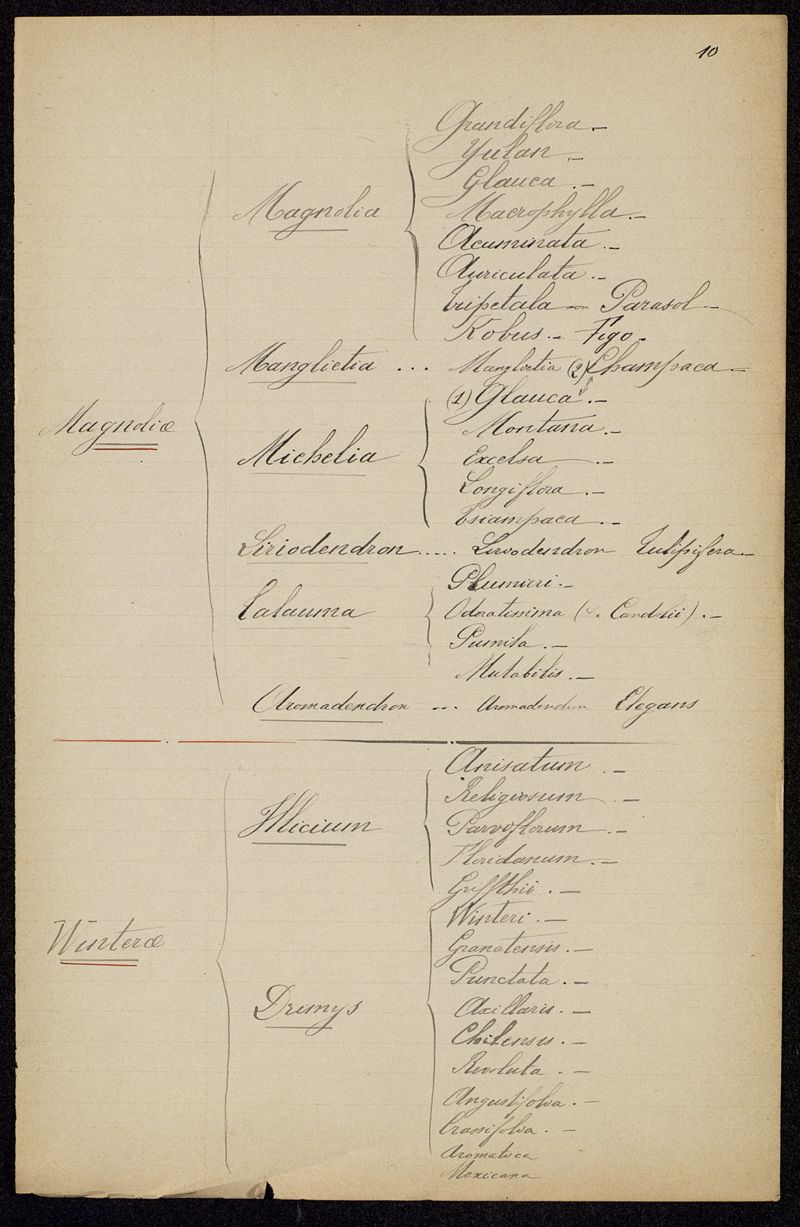 10
Grandiflora. —
Yulan. —
Glauca. —
Magnolia
Macrophylla. —
Acuminata. —
Auriculata. —
Tripetala — Parasol —
Kobus. — Figo —
Manglietia ... Manglietia (2) Champaca —
(1) Glauca. —
Magnoliæ
Montana. —
Michelia
Excelsa —
Longiflora. —
Tsiampaca. —
Liriodendron .... Liriodendron Tulipifera —
Plumieri. —
Talauma
Odoratissima ( Candolii). —
Pumila. —
Mutabilis. —
Aromadendron ... Aromadendron Elegans
Anisatum. —
Religiosum —
Illicium
Parviflorum. —
Floridanum. —
Griffthii. —
Winteri. —
Winteræ
Granatensis. —
Punctata. —
Drimys
Axillaris. —
Chilensis. —
Revoluta. —
Angustifolia. —
Crassifolia. —
Aromatica
Mexicana